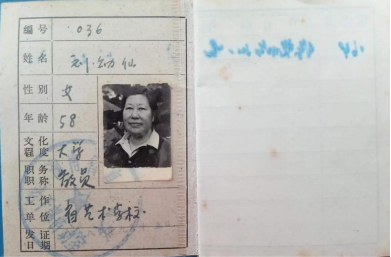 编号 036
姓名 刘幼仙
性别 女
年龄 58
文化程度 大学
职务职称 教员
工作单位 省艺术学校
发证日期